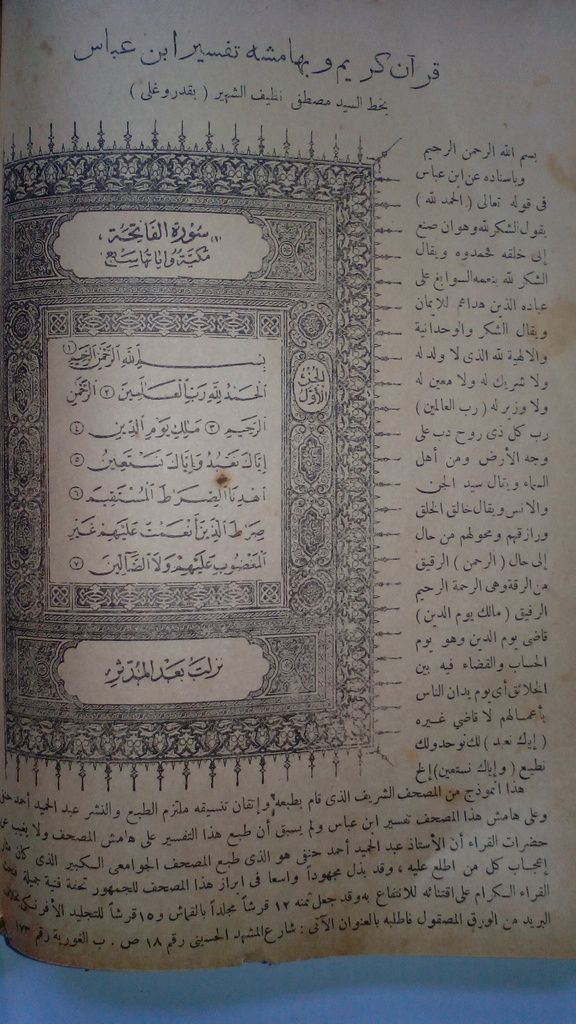 قرآن كريم وبهامشه تفسير ابن عباس
بخط السيد مصطفى نظيف الشهير ( بقدروغلى )
بسم الله الرحمن الرحيم
وباسناده عن ابن عباس
فى قوله تعالى ( الحمد لله )
يقول الشكر لله وهوان صنع
إلى خلقه فحمدوه ويقال
الشكر لله بنعمه السوابغ على
عباده الذين هداهم للايمان
ويقال الشكر والوحدانية
والالهية لله الذى لا ولد له
ولا شريك له ولا معين له
ولا وزير له ( رب العالمين )
رب كل ذى روح دب على
وجه الأرض ومن أهل
السماء ويقال سيد الجن
والانس ويقال خالق الخلق
ورازقهم ومحولهم من حال
إلى حال ( الرحمن ) الرقيق
من الرقة وهى الرحمة الرحيم
الرفيق ( مالك يوم الدين )
قاضى يوم الدين وهو يوم
الحساب والقضاء فيه بين
الخلائق أى يوم يدان الناس
بأعمالهم لا قاضي غيره
( إياك نعبد ) لك نوحد ولك
نطيع ( وإياك نستعين ) إلخ
سورة الفاتحة
مكية وآياتها سبع
بسم الله الرحمن الرحيم ١
الحمد لله رب العالمين ٢ الرحمن
الرحيم ٣ مالك يوم الدين ٤
إياك نعبد وإياك نستعين ٥
اهدنا الصراط المستقيم ٦
صراط الذين أنعمت عليهم غير
المغضوب عليهم ولا الضالين ٧
الجزء
الأول
نزلت بعد المدثر
هذا أنموذج من المصحف الشريف الذى قام بطبعه وإتقان تنسيقه ملتزم الطبع والنشر عبد الحميد أحمد حنفى
وعلى هامش هذا المصحف تفسير ابن عباس ولم يسبق أن طبع هذا التفسير على هامش المصحف ولا يغيب عن
حضرات القراء أن الأستاذ عبد الحميد أحمد حنفى هو الذى طبع المصحف الجوامعى الكبير الذى كان
إعجاب كل من اطلع عليه ، وقد بذل مجهوداً واسعا فى ابراز هذا المصحف للجمهور تحفة فنية جميلة
القراء الكرام على اقتنائه للانتفاع به وقد جعل ثمنه ١٢ قرشاً مجلداً بالقماش و ١٥ قرشاً للتجليد الأفرنكى
البريد من الورق المصقول فاطلبه بالعنوان الآتى : شارع المشهد الحسينى رقم ١٨ ص . ب الغورية رقم ١٧٣